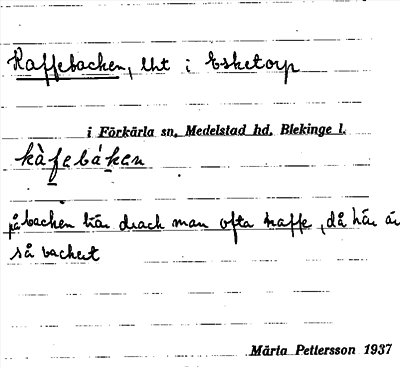 Kaffebacken, lht i Esketorp
i Förkärla sn. Medelstad hd. Blekinge l.
kàfebáken
på backen här drack man ofta kaffe, då här är
så vackert
Märta Pettersson 1937